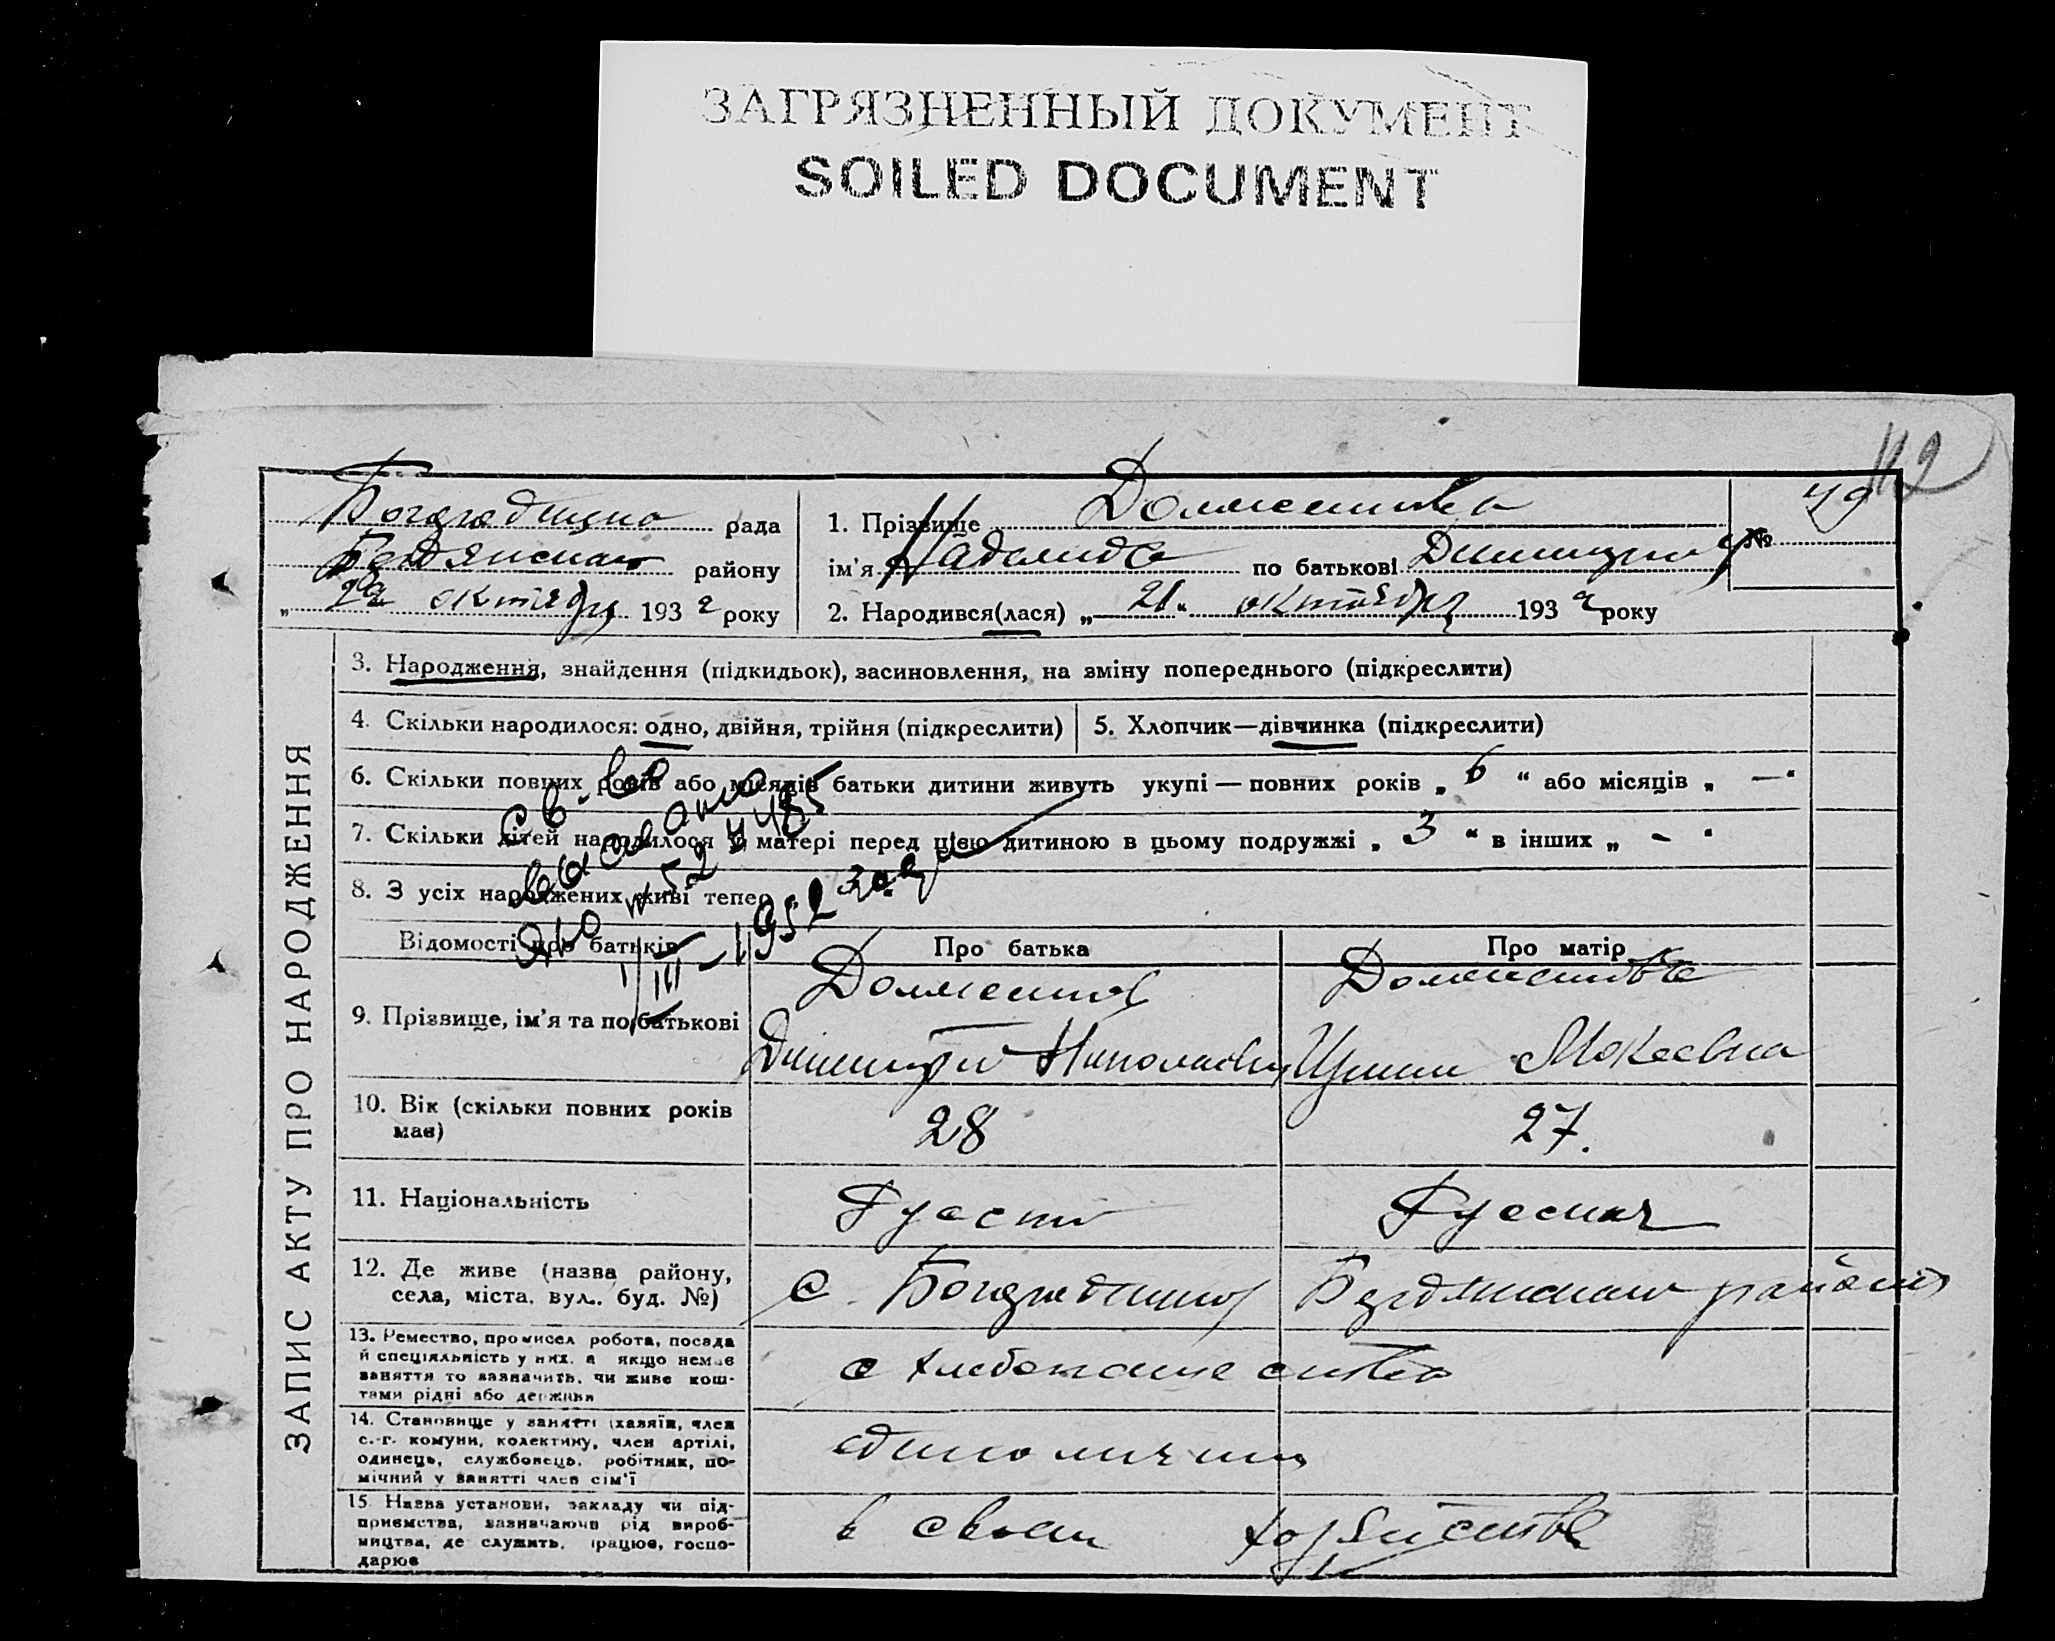 ЗАГРЯЗНЕННЫЙ ДОКУМЕНТ
SOILED DOCUMENT
112
рада
району
22 октября 1932 року
1. Прізвище Долженкова
ім'я по батькові
№ 49
2. Народився(лася) „ 21 " октября 1932 року
ЗАПИС АКТУ ПРО НАРОДЖЕННЯ
3. Народження, знайдення (підкидьок), засиновлення, на зміну попереднього (підкреслити)
4. Скільки народилося: одно, двійня, трійня (підкреслити)
5. Хлопчик—дівчинка (підкреслити)
6. Скільки повних років або місяців батьки дитини живуть укупі — повних років „ 6 " або місяців „ — "
7. Скільки дітей народилося у матері перед цією дитиною в цьому подружжі „ 3 " в інших „ - "
8. З усіх народжених живі тепер
св-во
выдано
1952
Відомості про батьків
Про батька
Про матір
9. Прізвище, ім'я та по батькові
Долженков
Николаевич
Долженкова
Мокеевна
10. Вік (скільки повних років має)
28
27.
11. Національність
Русский
Русская
12. Де живе (назва району,
села, міста, вул., буд. №)
с. района
13. Ремество, промисел робота, посада
й спеціяльність у них, а якщо немає
заняття то зазначить, чи живе кош-
тами рідні або держави
хлебопашество
14. Становище у занятті (хазяїн, член
с.-г. комуни, колективу, член артілі,
одинець, службовець, робітник, по-
мічний у занятті член сім'ї
единоличник
15. Назва установи, закладу чи під-
приємства, зазначаючи рід вироб-
ництва, де служить, працює, госпо-
дарює
в своем хозяйстве